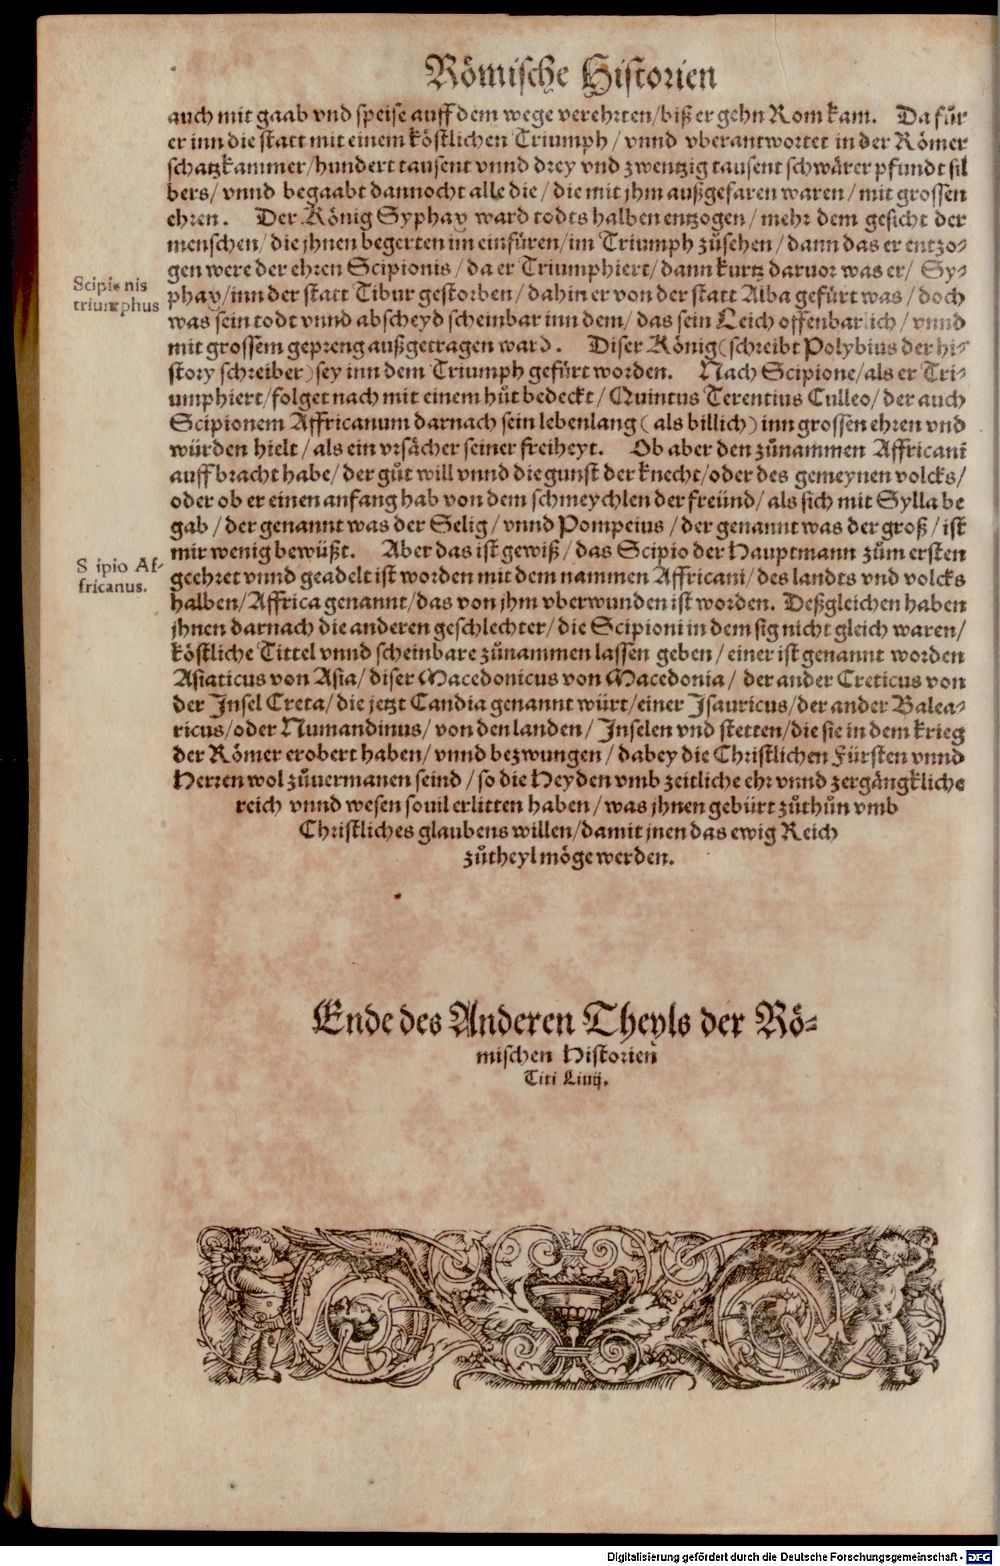 Römische Historien
auch mit gaab vnd speise auff dem wege verehrten/biß er gehn Rom kam. Da fůr
er inn die statt mit einem köstlichen Triumph/ vnnd vberantwortet in der Römer
schatzkammer/hundert tausent vnnd drey vnd zwentzig tausent schwårer pfundt sil
bers/ vnnd begaabt dannocht alle die/ die mit jhm außgefaren waren/ mit grossen
ehren. Der König Syphax ward todts halben entzogen/ mehr dem gesicht der
menschen/ die jhnen begerten im einfůren/im Triumph zůsehen/ dann das er entzo-
gen were der ehren Scipionis/ da er Triumphiert/ dann kurtz daruor was er/ Sy-
phax/inn der statt Tibur gestorben/ dahin er von der statt Alba gefůrt was/ doch
Scipionis
triumphus
was sein todt vnnd abscheyd scheinbar inn dem/ das sein Leich offenbarlich/ vnnd
mit grossem gepreng außgetragen ward. Diser König (schreibt Polybius der hi-
story schreiber) sey inn dem Triumph gefůrt worden. Nach Scipione/als er Tri-
umphiert/folget nach mit einem hůt bedeckt/ Quintus Terentius Culleo/ der auch
Scipionem Affricanum darnach sein lebenlang ( als billich ) inn grossen ehren vnd
würden hielt/ als ein vrsächer seiner freiheyt. Ob aber den zůnammen Affricani
auffbracht habe/ der gůt will vnnd die gunst der knecht/oder des gemeynen volcks/
oder ob er einen anfang hab von dem schmeychlen der freünd/ als sich mit Sylla be
gab/ der genannt was der Selig/ vnnd Pompeius/ der genannt was der groß/ ist
mir wenig bewüßt. Aber das ist gewiß/ das Scipio der Hauptmann zům ersten
Scipio Af-
fricanus.
geehret vnnd geadelt ist worden mit dem nammen Affricani/ des landts vnd volcks
halben/Affrica genannt/das von jhm vberwunden ist worden. Deßgleichen haben
jhnen darnach die anderen geschlechter/ die Scipioni in dem sig nicht gleich waren/
köstliche Tittel vnnd scheinbare zůnammen lassen geben/ einer ist genannt worden
Asiaticus von Asia/ diser Macedonicus von Macedonia/ der ander Creticus von
der Jnsel Creta/ die jetzt Candia genannt würt/einer Jsauricus/der ander Balea-
ricus/oder Numandinus/ von den landen/ Jnselen vnd stetten/die sie in dem krieg
der Römer erobert haben/ vnnd bezwungen/ dabey die Christlichen Fürsten vnnd
Herren wol zůuermanen seind/ so die Heyden vmb zeitliche ehr vnnd zergängkliche
reich vnnd wesen souil erlitten haben/ was jhnen gebürt zůthůn vmb
Christliches glaubens willen/damit jnen das ewig Reich
zůtheyl möge werden.
Ende des Anderen Theyls der Rö-
mischen Historien
Titi Liuij.
Digitalisierung gefördert durch die Deutsche Forschungsgemeinschaft - DFG